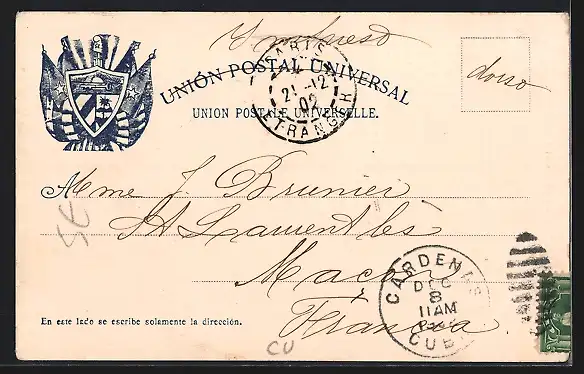 Impreso
dorso
UNIÓN POSTAL UNIVERSAL
UNION POSTALE UNIVERSELLE.
PARIS
21 -12
02
ETRANGER
Mme J. Brunier
St Laurent lès
Macon
Francia
CARDENAS
DEC
8
11 AM
CUBA
En este lado se escribe solamente la dirección.
CU